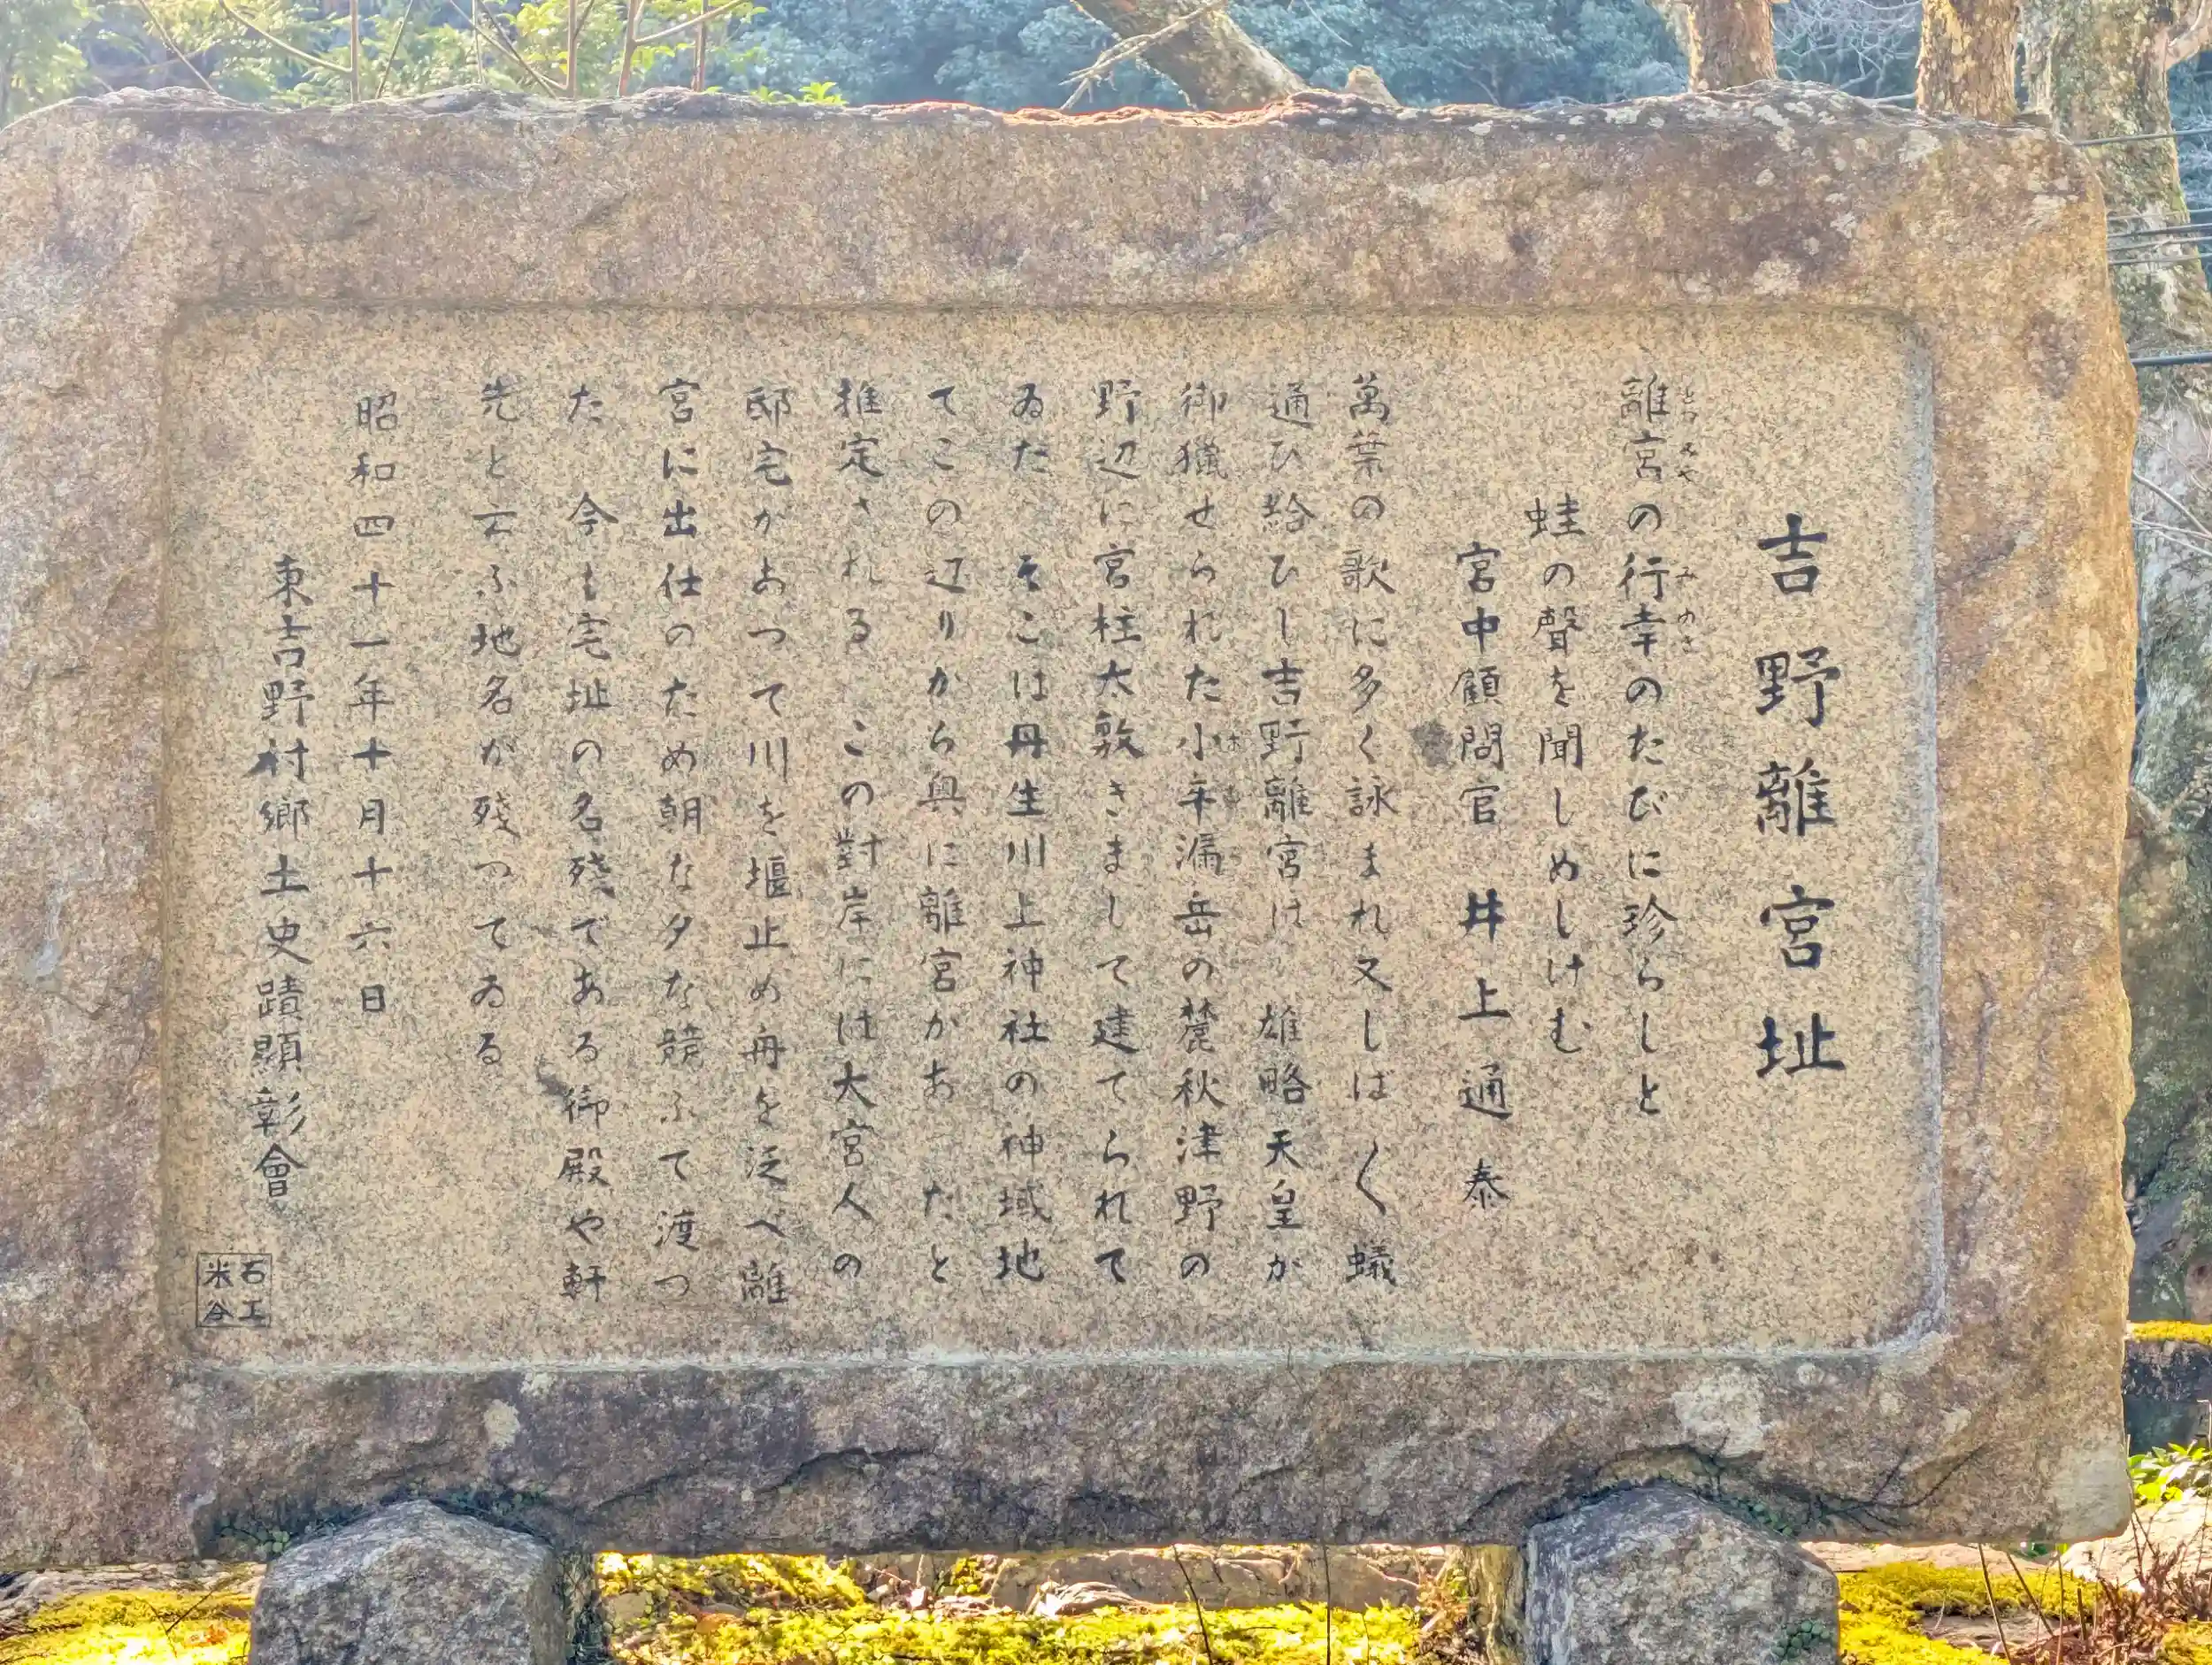 吉野離宮址
離宮の行幸のたびに珍らしと
とつみや みゆき
蛙の聲を聞しめしけむ
宮中顧問官 井上通泰
萬葉の歌に多く詠まれ又しば〱蟻
通ひ給ひし吉野離宮は 雄略天皇が
御獵せられた小牟漏岳の麓秋津野の
野辺に宮柱太敷きまして建てられて
ゐた そこは丹生川上神社の神域地
てこの辺りから奥に離宮があったと
推定される この對岸には大宮人の
邸宅があつて川を堰止め舟を泛べ離
宮に出仕のため朝な夕な競ふて渡つ
た 今も宅址の名残である御殿や軒
先と云ふ地名が残つてゐる
昭和四十一年十月十六日
東吉野村郷土史蹟顯彰會
石工
米谷